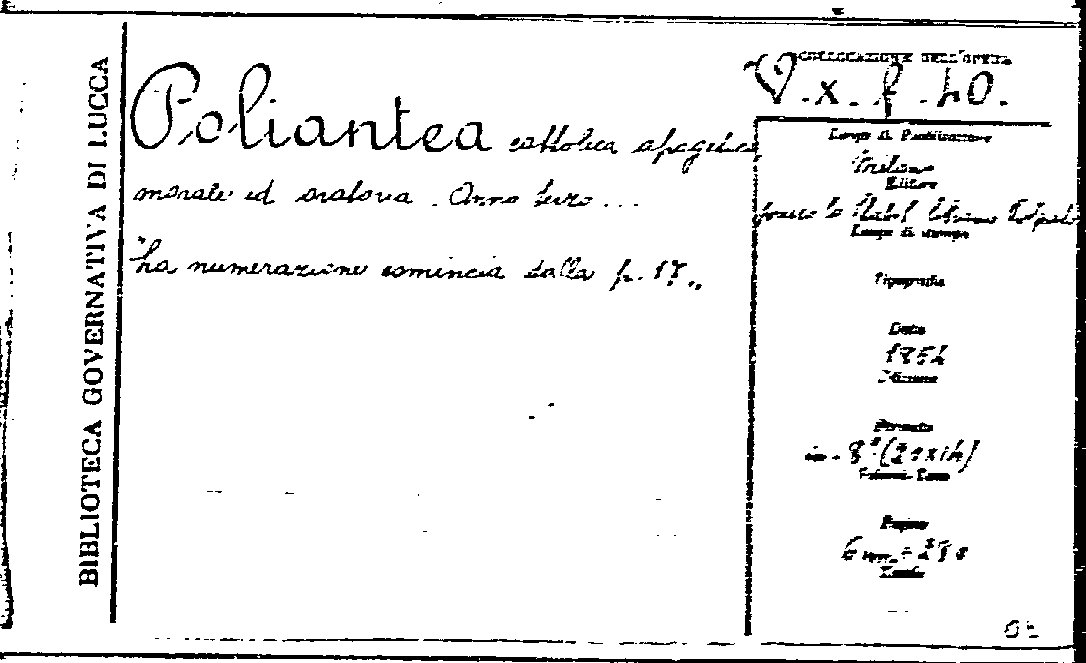 BIBLIOTECA GOVERNATIVA DI LUCCA
Poliantea cattolica apagetica
morale ed oratoria. Anno terzo...
"La numerazione comincia dalla p. 17"
COLLOCAZIONE DELL'OPERA
V.x.f.40.
Luogo di Pubblicazione
Milano
Editore
Luogo di stampa
Tipografia
Data
1854
Edizione
Formato
in-8°(21x14)
Volumi-Tomo
Pagine
Tavole